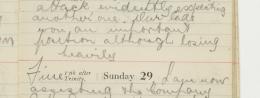 attack evidently expecting
another one. Our lads
won an important
position although losing
heavily
Fine 7th after Trinity. Sunday 29 I am now
assisting the Company